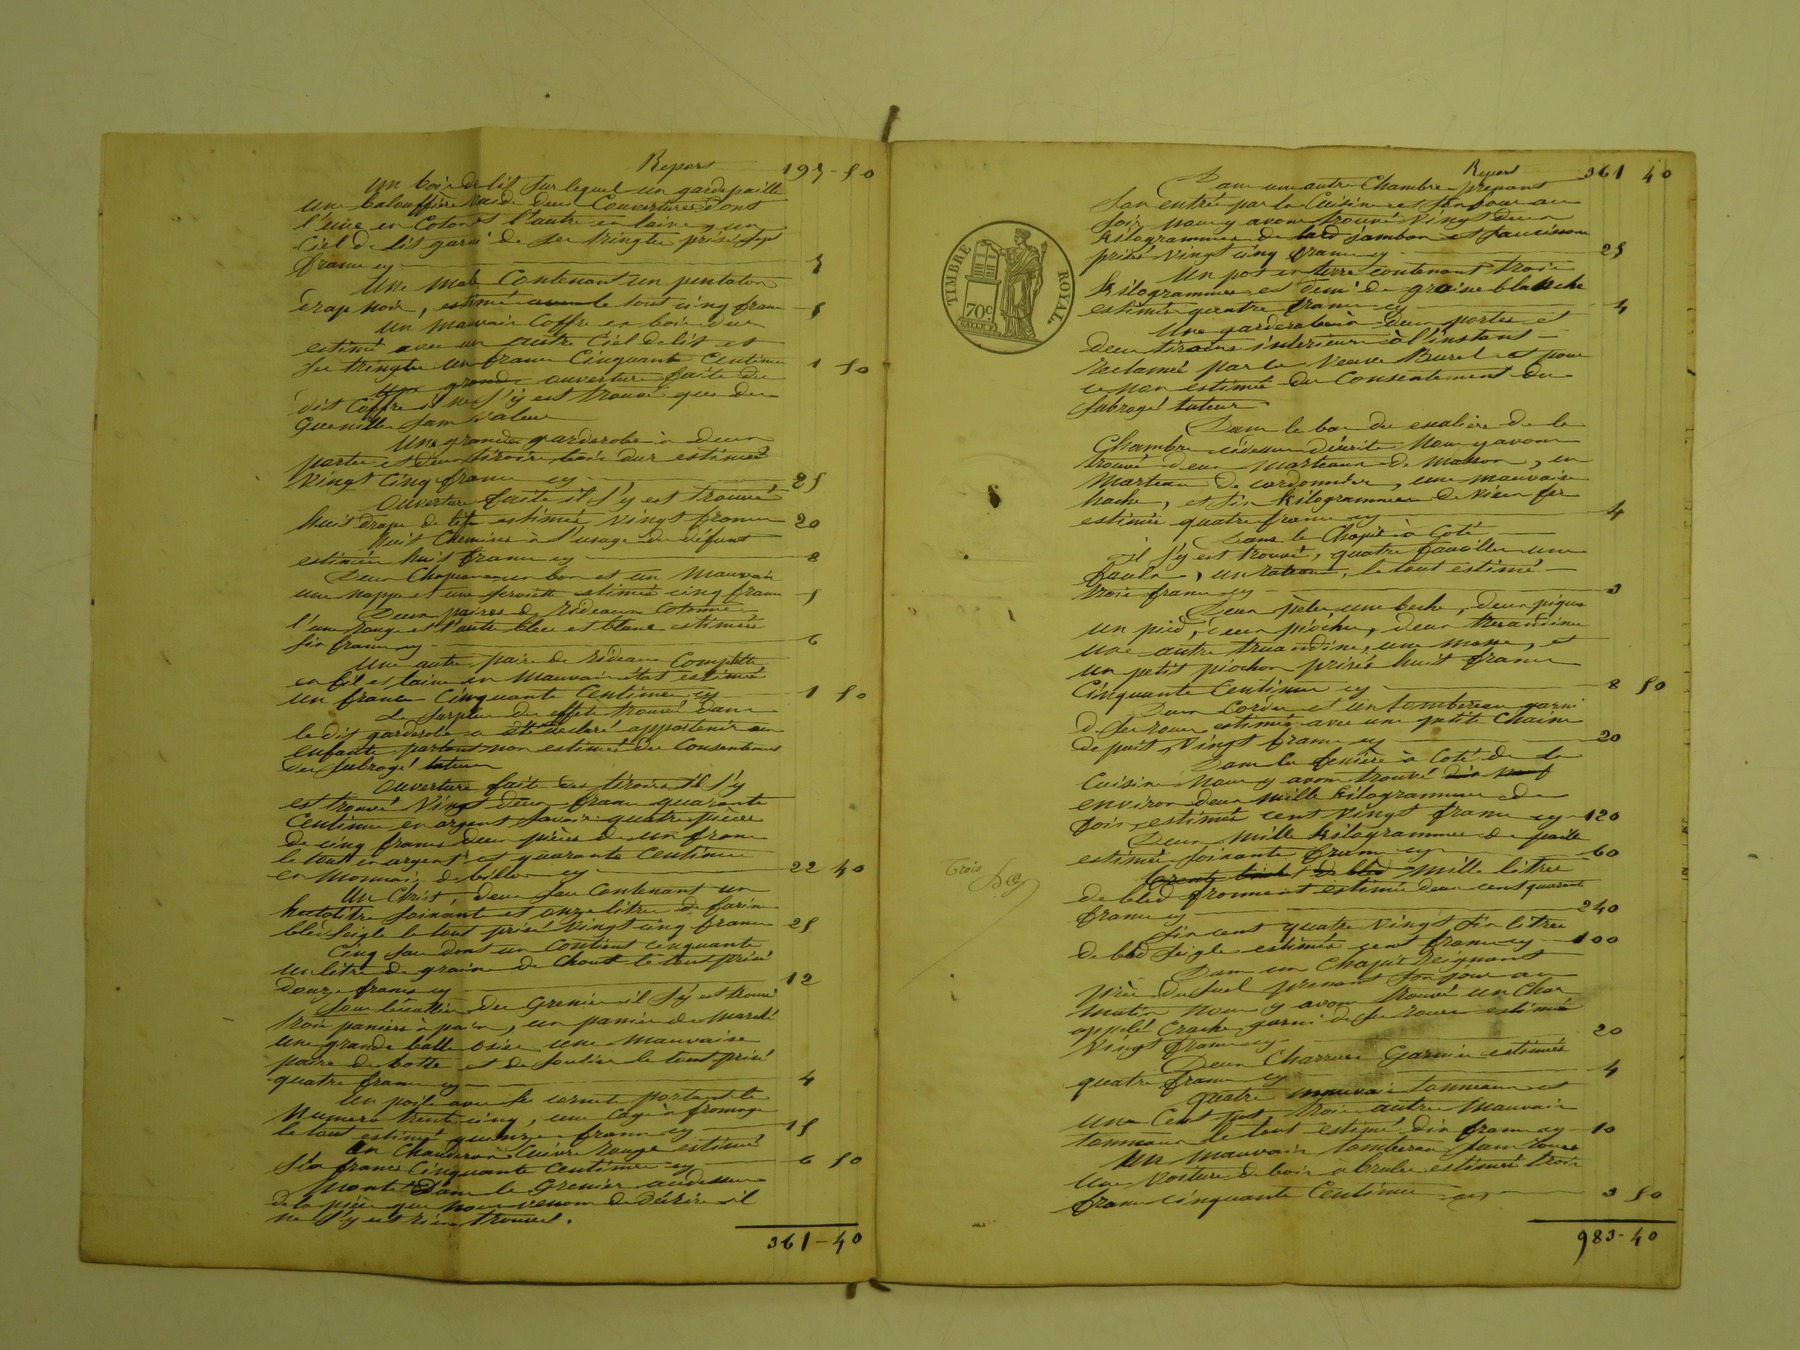 Report 197-50
un bois de lit sur lequel un gardepaille
une balouffière deux Couvertures dont
l'une en Coton et l'autre en laine, un
Ciel de lit garni de ses tringles prisé sept
francs cy 7
Une male Contenant un pentalon
drap noir, estimé le tout cinq francs 5
un mauvais Coffre en bois dur
estimé avec un autre Ciel de lit et
ses tringles un franc Cinquante Centimes 1 50
ouverture faite du
dit Coffre il ne s'y est trouvé que des
Guenilles sans valeur
Une grande garderobe à deux
portes et deux tiroirs bois dur estimée
Vingt Cinq francs cy 25
Ouverture faite il s'y est trouvé
huit draps de lit estimés Vingt francs 20
huit Chemises à l'usage du défunt
estimées huit francs cy 8
Deux Chapeaux un bon et un Mauvais
une nappe et une serviette estimés cinq francs 5
Deux paires de rideaux Cotonne
l'une rouge et l'autre bleu et blanc estimées
six francs cy 6
Une autre paire de rideaux Complette
en fil et laine en mauvais état estimée
un franc Cinquante Centimes cy 1 50
Le Surplus des effets trouvés dans
le dit garderobe a été déclaré appartenir aux
enfants partant non estimés du Consentement
du subrogé tuteur
Ouverture faite des tiroirs il s'y
est trouvé Vingt deux francs quarante
Centimes en argent savoir quatre pièces
de cinq francs deux pièces de un franc
le tout en argent et quarante Centimes
en Monnaie de billon cy 22 40
Un Christ, deux sacs Contenant un
hectolitre soixante et onze litres de farine
bled seigle le tout prisé Vingt cinq francs 25
Cinq sacs dont un Contient cinquante
un litres de graine de Choux le tout prisé
douze francs cy 12
Sous l'escallier du Grenier il s'y est trouvé
trois paniers à pain, un panier de Marché
une grande balle osier une Mauvaise
paire de botte et de soulier le tout prisé
quatre francs cy 4
Un poile avec se cornets portant le
Numéro trente cinq, une Cage à fromage
le tout estimé quinze francs cy 15
Un Chaudron Cuivre rouge estimé
six francs Cinquante Centimes cy 6 50
Monté Dans le Grenier audessus
de la pièce que nous venons de décrire il
ne s'y est rien trouvé.
361-40
Report 361 40
Dans une autre Chambre prenant
son entrée par la Cuisine et son jour au
soir nous y avons trouvé Vingt deux
Kilogrammes de lard jambon et saucissons
prisés Vingt cinq francs cy 25
Un pot en terre contenant trois
Kilogrammes et demi de graisse blanche
estimés quatre francs cy 4
Une garderobe à deux portes et
deux tiroirs intérieurs à l'instant
réclamée par la Veuve Burel et pour
ce non estimée du Consentement du
subrogé tuteur
Dans le bas du escalier de la
Chambre cidessus décrite Nous y avons
trouvé deux Marteaux de Masson, un
Marteau de cordonnier, une mauvaise
hache, et six Kilogrammes de vieux fer
estimés quatre francs cy 4
Dans le Chapit à Coté
il s'y est trouvé, quatre faucilles une
faulx, un rateau, le tout estimé
trois francs cy 3
Deux pèles une beche, deux piques
un pied, deux pioches, deux trerandine
une autre truandine, une masse, et
un petit piochon prisés huit francs
Cinquante Centimes cy 8 50
Deux Cordes et un tombereau garni
de ses roues estimés avec une petite Chaine
de puit Vingt francs cy 20
Dans la fenière à Coté de la
Cuisine Nous y avons trouvé
environ deux mille Kilogrammes de
foin estimés cent Vingt francs cy 120
Deux mille Kilogrammes de paille
estimés soixante francs cy 60
Mille litres
de bled froment estimés deux cent quarante
francs cy 240
Six cent quatre Vingt six litres
de bled seigle estimés cent francs cy 100
Dans un Chapit Joignant
prenant son jour au
Matin Nous y avons trouvé un Char
appelé Crache garni de ses roues estimé
Vingt francs cy 20
Deux Charrues Garnies estimées
quatre francs cy 4
Quatre mauvais tonneaux et
trois autre Mauvais
tonneaux le tout estimé dix francs cy 10
Un Mauvais tombereau sans roues
Une Voiture de bois à bruler estimés trois
francs cinquante Centimes cy 3 50
983-40
TIMBRE ROYAL.
70c.
Trois